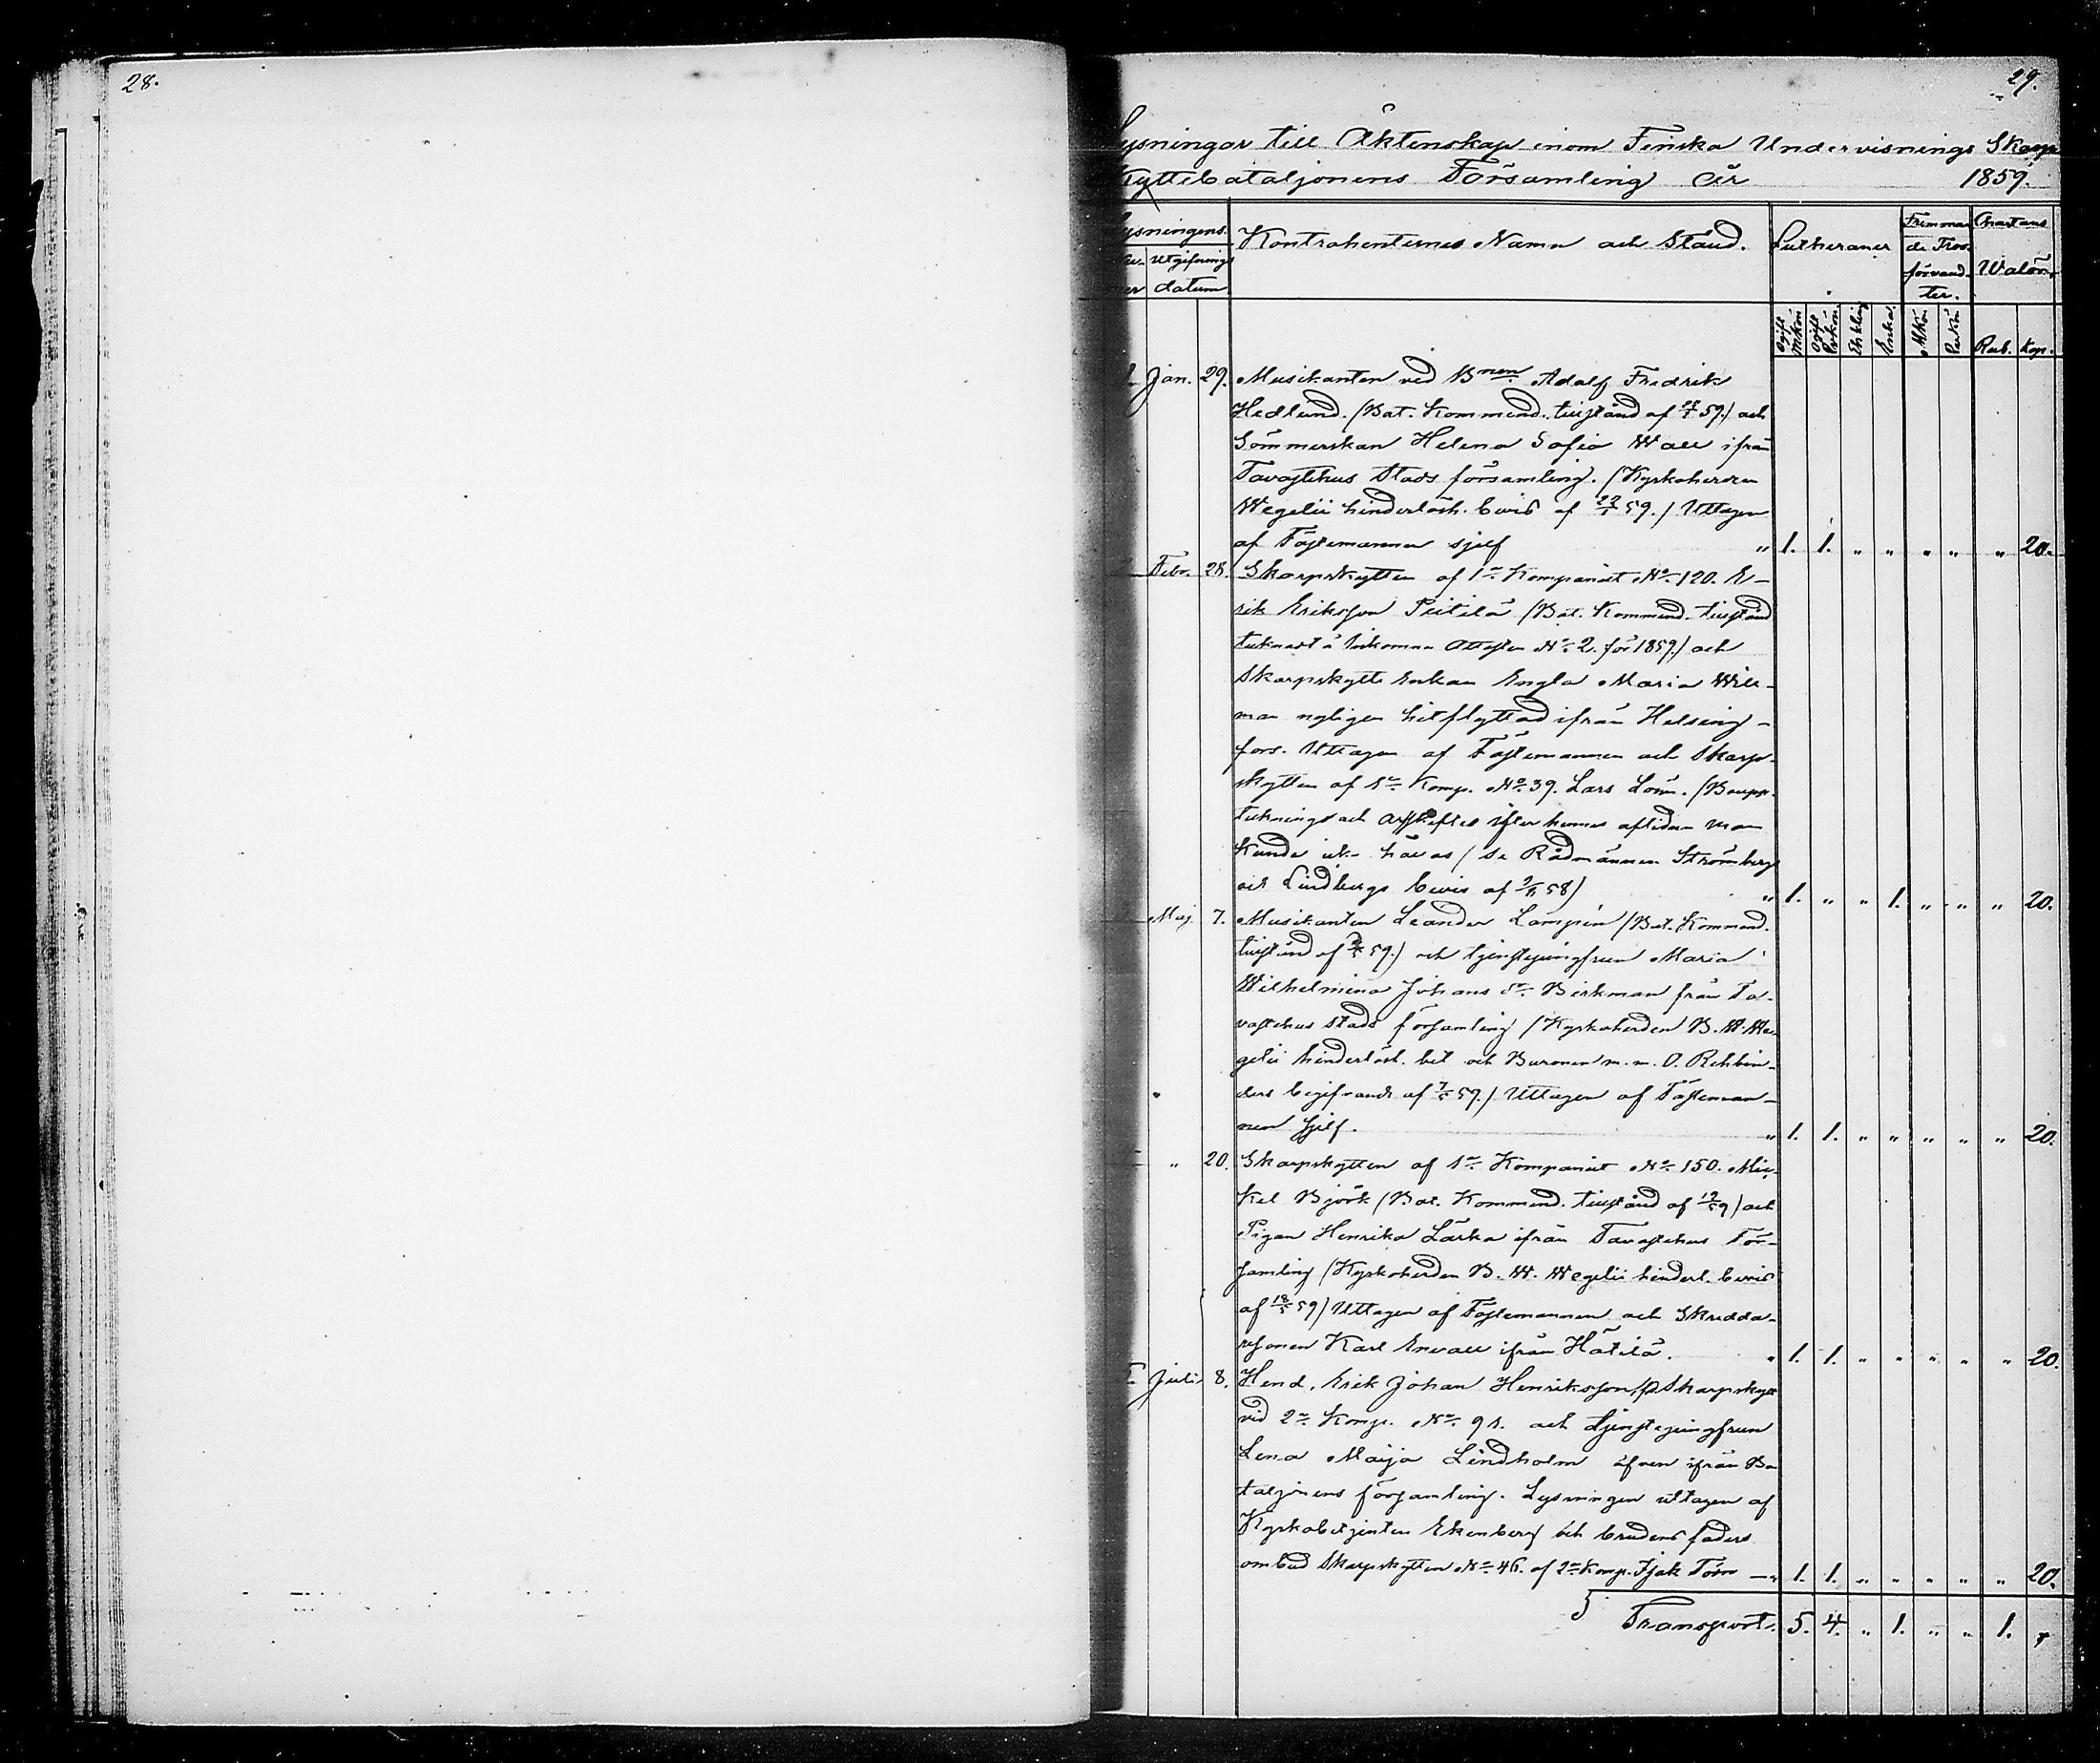 28.
29.
Lysningar till Äktenskap inom Finska Undervisnings Skarp
skyttebataljonens Församling år 1859.
Lysningens Kontrahenternes Namn och Stånd. Lutheraner Främman- Chartans
Utgifnings de Tros- Walör
datum. förvand-
ter.
Ogift Mkön Ogift Qvkön Enkling Enka Mkön Qvkön Rub. Kop.
Jan. 29. Musikanten vid Bnen Adolf Fredrik
Hedlund. (Bat. Kommend. tillstånd af 59.) och
Sömmerskan Helena Sofia Wall ifrån
Tavastehus Stads församling. (Kyrkoherden
Wegelii hinderlösh. bevis af 29/1 59.) Uttagen
af Fästemannen sjelf " 1. 1. " " " " " 20.
Febr. 28. Skarpskytten af 1a Kompaniet No 120. E-
rik Eriksson Peitilä (Bat. Kommend. tillstånd
tecknadt å inkomne Attesten No 2. för 1859.) och
Skarpskytte Enkan Engla Maria Will-
man nyligen hitflyttad ifrån Helsing-
fors. Uttagen af Fästemannen och Skarp-
skytten af 1a Komp. No 39. Lars Lönn. (Boupp-
teckning och Arfskiftes efter hennes aflidne man
kunde icke hållas / se Rådmännen Strömbergs
och Lindbergs bevis af 58) " 1. " " 1. " " " 20.
Maj 7. Musikanten Leander Lampén (Bat. Kommend.
tillstånd af 59.) och tjenstejungfrun Maria
Wilhelmina Johans dr Birkman från Ta-
vastehus stads församling (Kyrkoherden B. W. We-
gelii hinderlösh. bet. och Baronen m. m. O. Rehbin-
ders begifvande af 7/5 59.) Uttagen af Fästeman-
nen sjelf. " 1. 1. " " " " " 20.
" 20. Skarpskytten af 1a Kompaniet No 150. Mic-
kel Björk (Bat. Kommend. tillstånd af 19/5 59) och
Pigan Henrika Lärka ifrån Tavastehus För-
samling (Kyrkoherden B. W. Wegelii hinderl. bevis
af 18/5 59) Uttagen af Fästemannen och Skredda-
resonen Karl Enwall ifrån Hätilä. " 1. 1. " " " " " 20.
Juli 8. Hend. Erik Johan Henriksson, Skarpskytt
vid 2a Komp. No 91. och tjenstejungfrun
Lena Maija Lindholm äfven ifrån Ba
taljonens församling. Lysningen uttagen af
Kyrkobetjenten Ekenberg och brudens faders
ombud Skarpskytten No 46. af 2a Komp. Isak Törn " 1. 1. " " " " " 20.
5 Transport. 5. 4. " 1. " " 1.